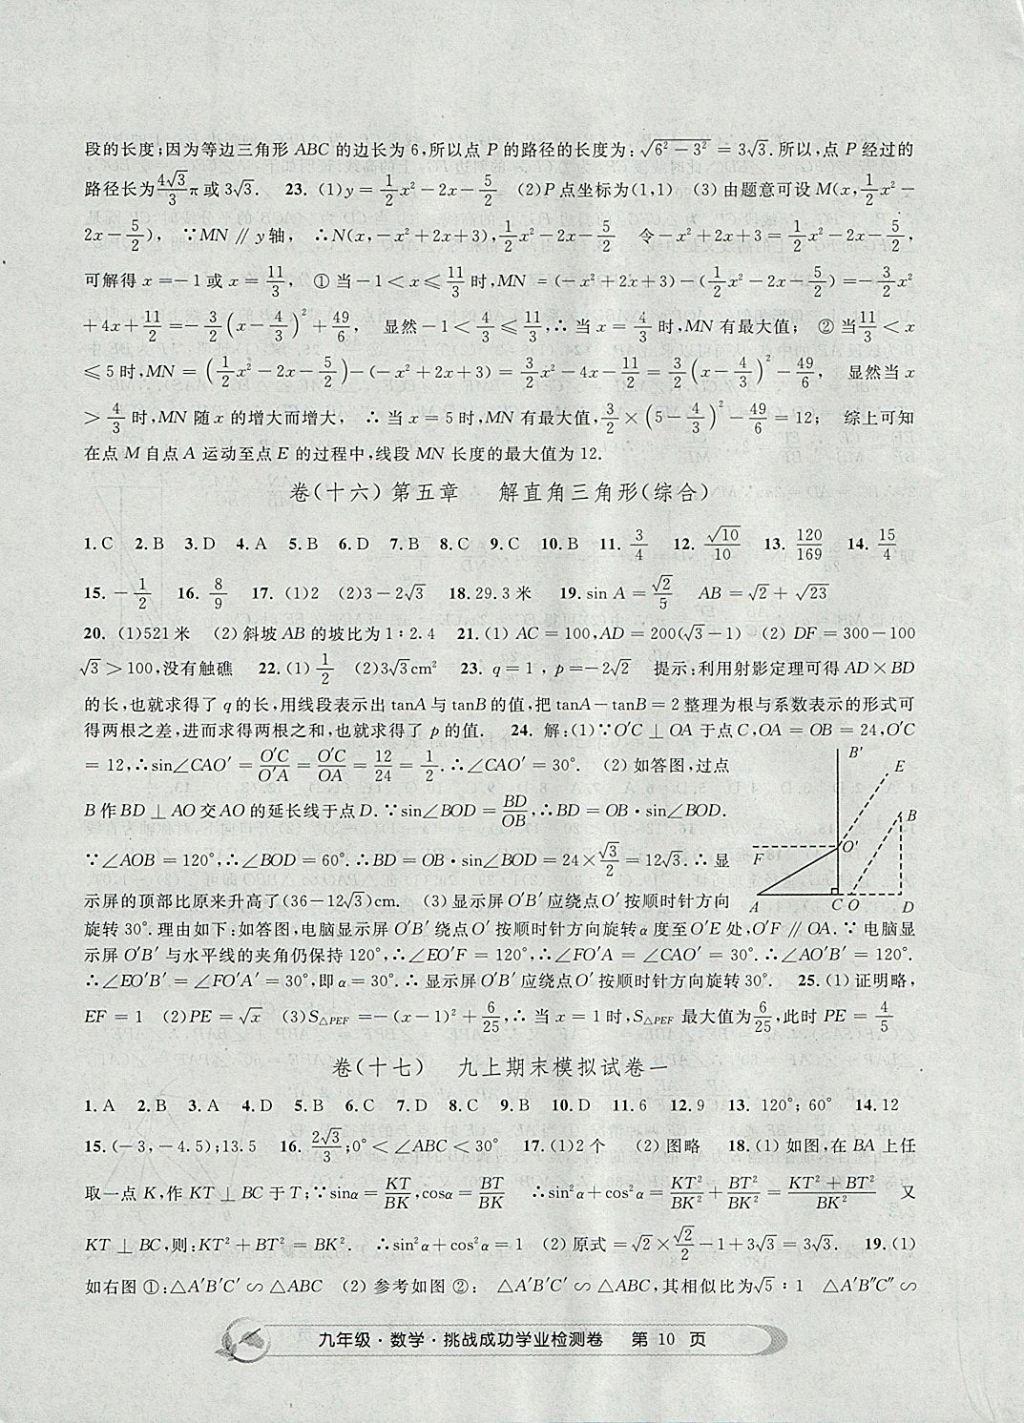 段的长度;因为等边三角形 ABC 的边长为 6,所以点 P 的路径的长度为:√(6²-3²)=3√3.所以,点 P 经过的
路径长为4√3/3π或3√3. 23. (1)y=1/2x²-2x-5/2 (2)P 点坐标为(1,1) (3)由题意可设 M(x,1/2x²-
2x-5/2), ∵MN∥y轴, ∴N(x,-x²+2x+3),1/2x²-2x-5/2 令-x²+2x+3=1/2x²-2x-5/2,
可解得 x=-1 或 x=11/3, ①当-1<x≤11/3时,MN =(-x²+2x+3)-(1/2x²-2x-5/2)=-3/2x²
+4x+11/2=-3/2(x-4/3)²+49/6, 显然-1<4/3≤11/3,∴当 x=4/3时,MN 有最大值; ②当11/3<x
≤5时,MN=(1/2x²-2x-5/2)-(-x²+2x+3)=3/2x²-4x-11/2=3/2(x-4/3)²-49/6, 显然当 x
>4/3时,MN 随 x 的增大而增大, ∴当 x=5时,MN 有最大值,3/2×(5-4/3)²-49/6=12; 综上可知
在点 M 自点 A 运动至点 E 的过程中,线段 MN 长度的最大值为 12.
卷(十六) 第五章 解直角三角形(综合)
1.C 2.B 3.D 4.A 5.B 6.D 7.B 8.C 9.C 10.B 11.3/4 12.√10/10 13.120/169 14.15/4
15.-1/2 16.8/9 17.(1)2 (2)3-2√3 18.29.3米 19.sin A=√2/5 AB=√2+√23
20.(1)521米 (2)斜坡 AB 的坡比为 1:2.4 21.(1) AC=100,AD=200(√3-1) (2) DF=300-100
√3>100,没有触礁 22.(1)1/2 (2)3√3cm² 23. q=1,p=-2√2 提示:利用射影定理可得 AD×BD
的长,也就求得了 q的长,用线段表示出 tanA 与 tanB 的值,把 tanA-tanB=2 整理为根与系数表示的形式可
得两根之差,进而求得两根之和,也就求得了 p 的值. 24. 解:(1)∵O′C⊥OA 于点C,OA=OB=24,O′C
=12,∴sin∠CAO′=O′C/O′A=O′C/OA=12/24=1/2.∴∠CAO′=30°. (2)如答图,过点
B 作 BD⊥AO 交AO的延长线于点 D.∵sin∠BOD=BD/OB,∴BD=OB·sin∠BOD.
∵∠AOB=120°,∴∠BOD=60°.∴BD=OB·sin∠BOD=24×√3/2=12√3.∴显
示屏的顶部比原来升高了(36-12√3)cm. (3)显示屏 O′B′应绕点O′按顺时针方向
旋转30°.理由如下:如答图,电脑显示屏 O′B′绕点O′按顺时针方向旋转α度至O′E 处,O′F∥OA.∵电脑显
示屏 O′B′与水平线的夹角仍保持 120°,∴∠EO′F=120°.∴∠FO′A=∠CAO′=30°.∴∠AO′B′=120°.
∴∠EO′B′=∠FO′A′=30°,即α=30°.∴显示屏 O′B′应绕点O′按顺时针方向旋转 30°. 25.(1)证明略,
EF=1 (2)PE=√x (3)S△PEF=-(x-1)²+6/25,∴当 x=1时,S△PEF最大值为6/25,此时 PE=4/5
B′
E
B
F
O′
A
C
O
D
卷(十七) 九上期末模拟试卷一
1.A 2.B 3.A 4.D 5.B 6.C 7.D 8.C 9.B 10.D 11.6 12.9 13.120°;60° 14.12
15.(-3,-4.5);13.5 16.2√3/3;0°<∠ABC<30° 17.(1)2个 (2)图略 18.(1)如图,在 BA 上任
取一点 K,作 KT⊥BC于 T;∵sinα=KT/BK,cosα=BT/BK ∴sin²α+cos²α=KT²/BK²+BT²/BK²=(KT²+BT²)/BK² 又
KT⊥BC,则:KT²+BT²=BK². ∴sin²α+cos²α=1 (2)原式=√2×√2/2-1+3√3=3√3. 19.(1)
如右图①:△A′B′C′∽△ABC (2)参考如图②: △A′B′C′∽△ABC,其相似比为√5:1 △A′B″C″∽
九年级·数学·挑战成功学业检测卷 第 10 页